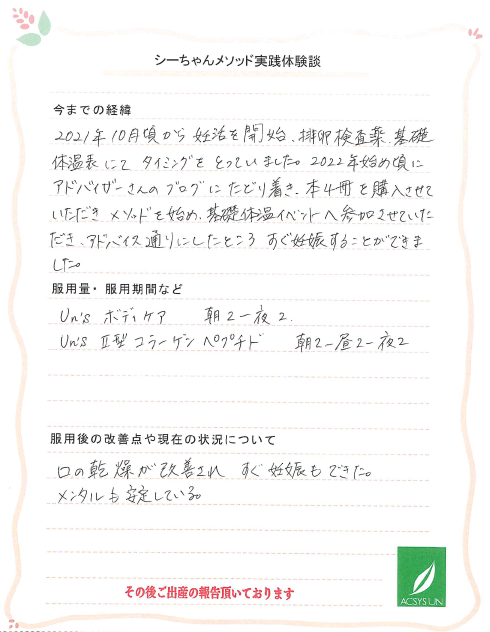 シーちゃんメソッド実践体験談
今までの経緯
2021年10月頃から妊活を開始、排卵検査薬、基礎
体温表にてタイミングをとっていました。2022年始め頃に
アドバイザーさんのブログにたどり着き、本4冊を購入させて
いただきメソッドを始め、基礎体温イベントへ参加させていた
だき、アドバイス通りにしたところすぐ妊娠することができま
した。
服用量・服用期間など
Un's ボディケア 朝2ー夜2.
Un's Ⅱ型コラーゲンペプチド 朝2ー昼2ー夜2
服用後の改善点や現在の状況について
口の乾燥が改善され すぐ妊娠もできた。
メンタルも安定している。
その後ご出産の報告頂いております
ACSYS'UN